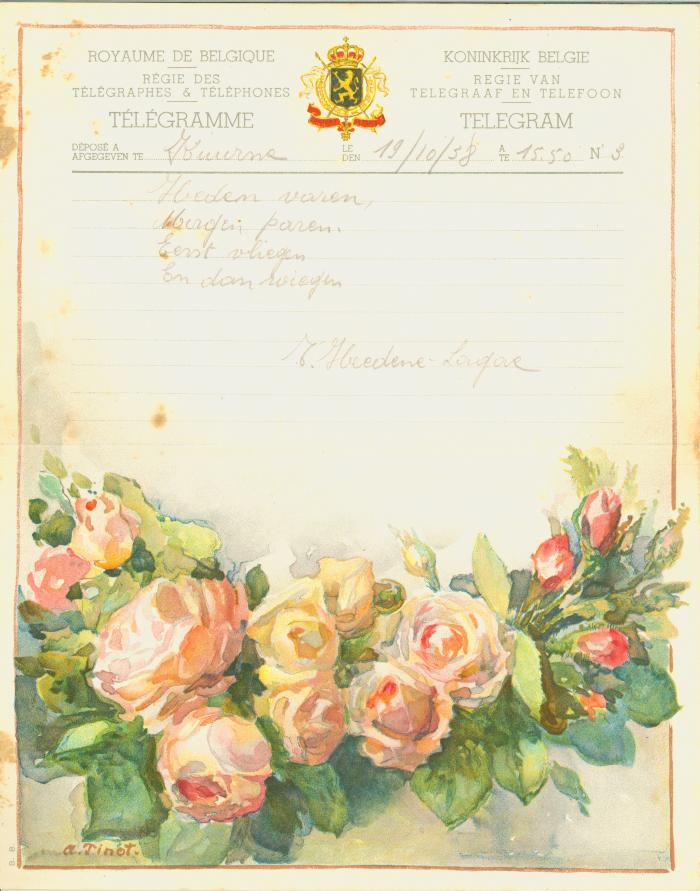 ROYAUME DE BELGIQUE
RÉGIE DES
TÉLÉGRAPHES & TÉLÉPHONES
TÉLÉGRAMME
KONINKRIJK BELGIE
REGIE VAN
TELEGRAAF EN TELEFOON
TELEGRAM
DÉPOSÉ A
AFGEGEVEN TE Kuurne LE
DEN 19/10/58 A
TE 15.50 N° 3
Heden varen,
Morgen paren.
Eerst vliegen
En dan wiegen
Heedene-Lagae
A. Pinot.
B. B.